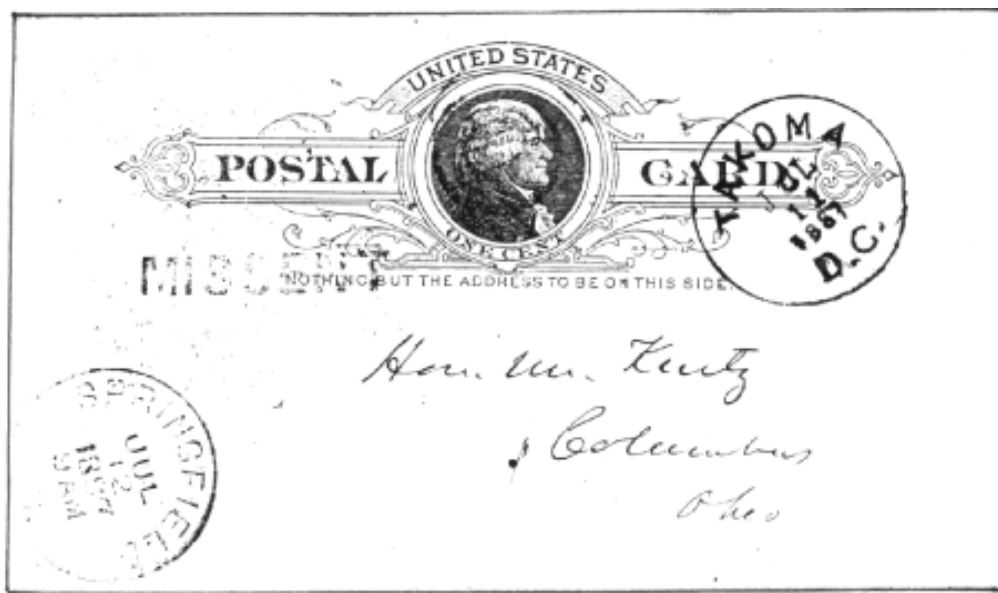 UNITED STATES
POSTAL CARD
ONE CENT
NOTHING BUT THE ADDRESS TO BE ON THIS SIDE.
TAKOMA
JUL
11
1887
D.C.
MISSENT
Hon. Wm. Kurtz
Columbus
Ohio
SPRINGFIELD
JUL
12
9 AM